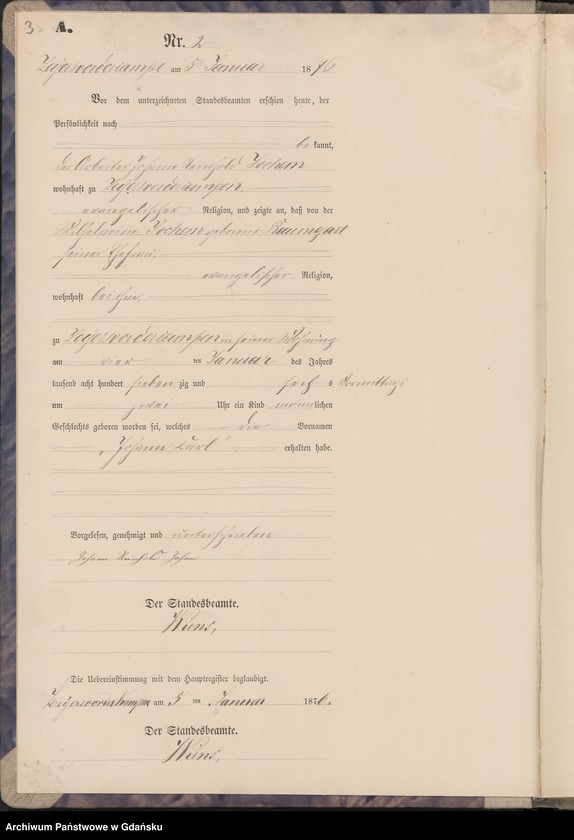 3
A.
Nr. 2
Zeyersvorderkampen am 5 Januar 1876
Vor dem unterzeichneten Standesbeamten erschien heute, der
Persönlichkeit nach
bekannt,
der Arbeiter Johann Reinhold Jochem
wohnhaft zu Zeyersvorderkampen,
evangelischer Religion, und zeigte an, daß von der
Wilhelmine Jochem geborene Baumgart
seiner Ehefrau,
evangelischer Religion,
wohnhaft bei ihm,
zu Zeyersvorderkampen in seiner Wohnung
am vier ten Januar des Jahres
tausend acht hundert sieben zig und sechs Vormittags
um zwei Uhr ein Kind männlichen
Geschlechts geboren worden sei, welches die Vornamen
„Johann Carl" erhalten habe.
Vorgelesen, genehmigt und unterschrieben
Johann Reinhold
Der Standesbeamte.
Wiens,
Die Uebereinstimmung mit dem Hauptregister beglaubigt.
Zeyersvorderkampen am 5 ten Januar 1876.
Der Standesbeamte.
Wiens,
Archiwum Państwowe w Gdańsku